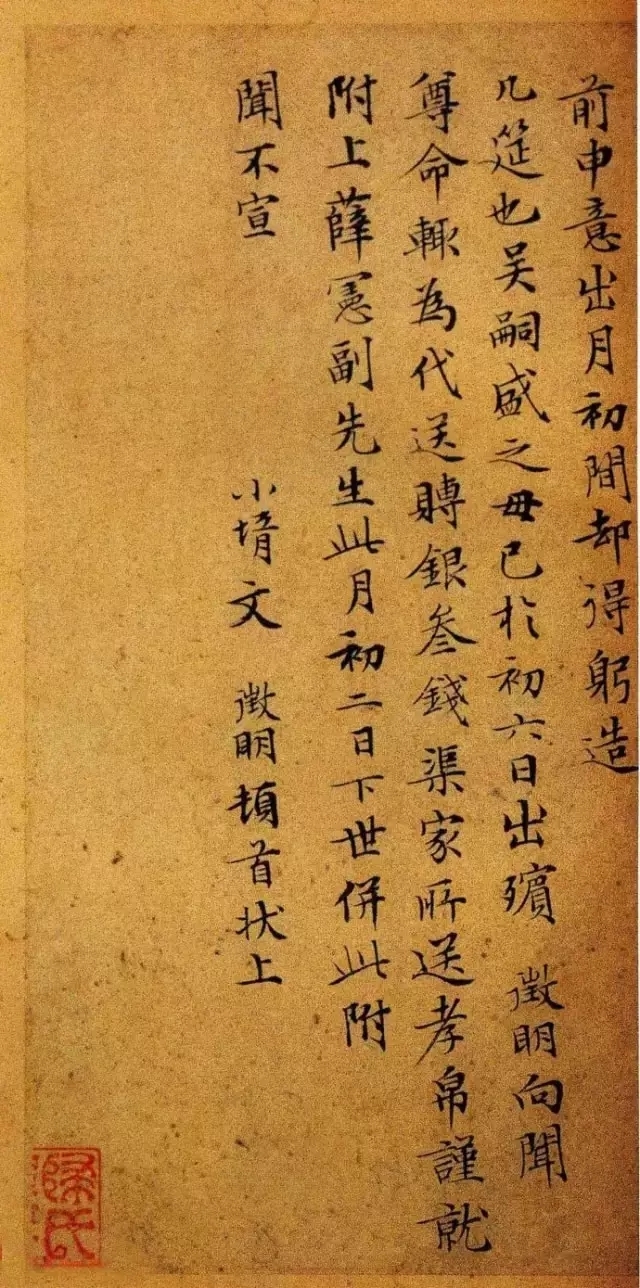 前申意出月初間却得躬造
几筵也吴嗣盛之毋已於初六日出殯徵明向聞
尊命輙為代送賻銀叁錢渠家所送孝帛謹就
附上薛憲副先生此月初二日下世併此附
聞不宣
小壻文徵明頓首狀上